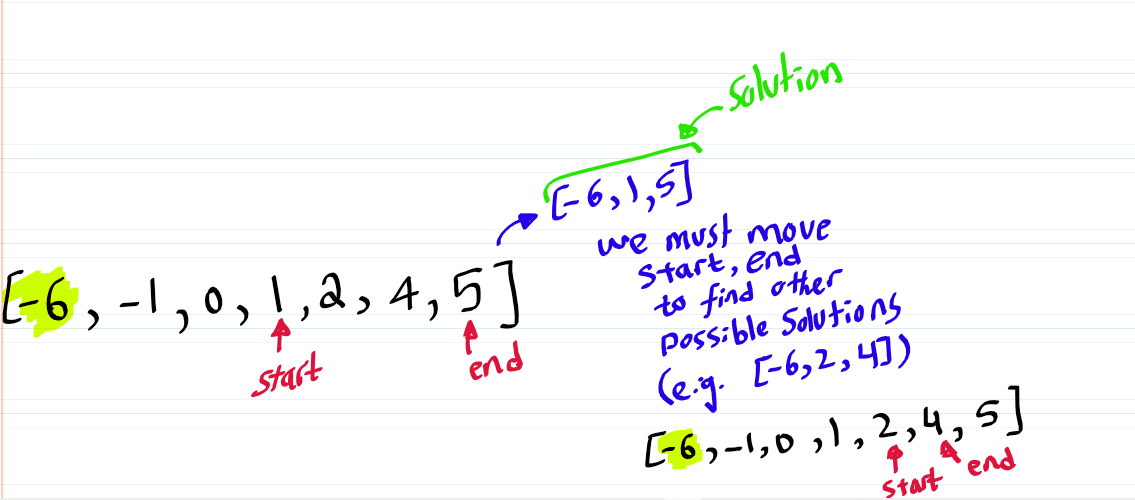 Solution
[-6, 1, 5]
we must move
start, end
to find other
possible solutions
(e.g. [-6, 2, 4])
[-6, -1, 0, 1, 2, 4, 5]
start
end
[-6, -1, 0, 1, 2, 4, 5]
start end